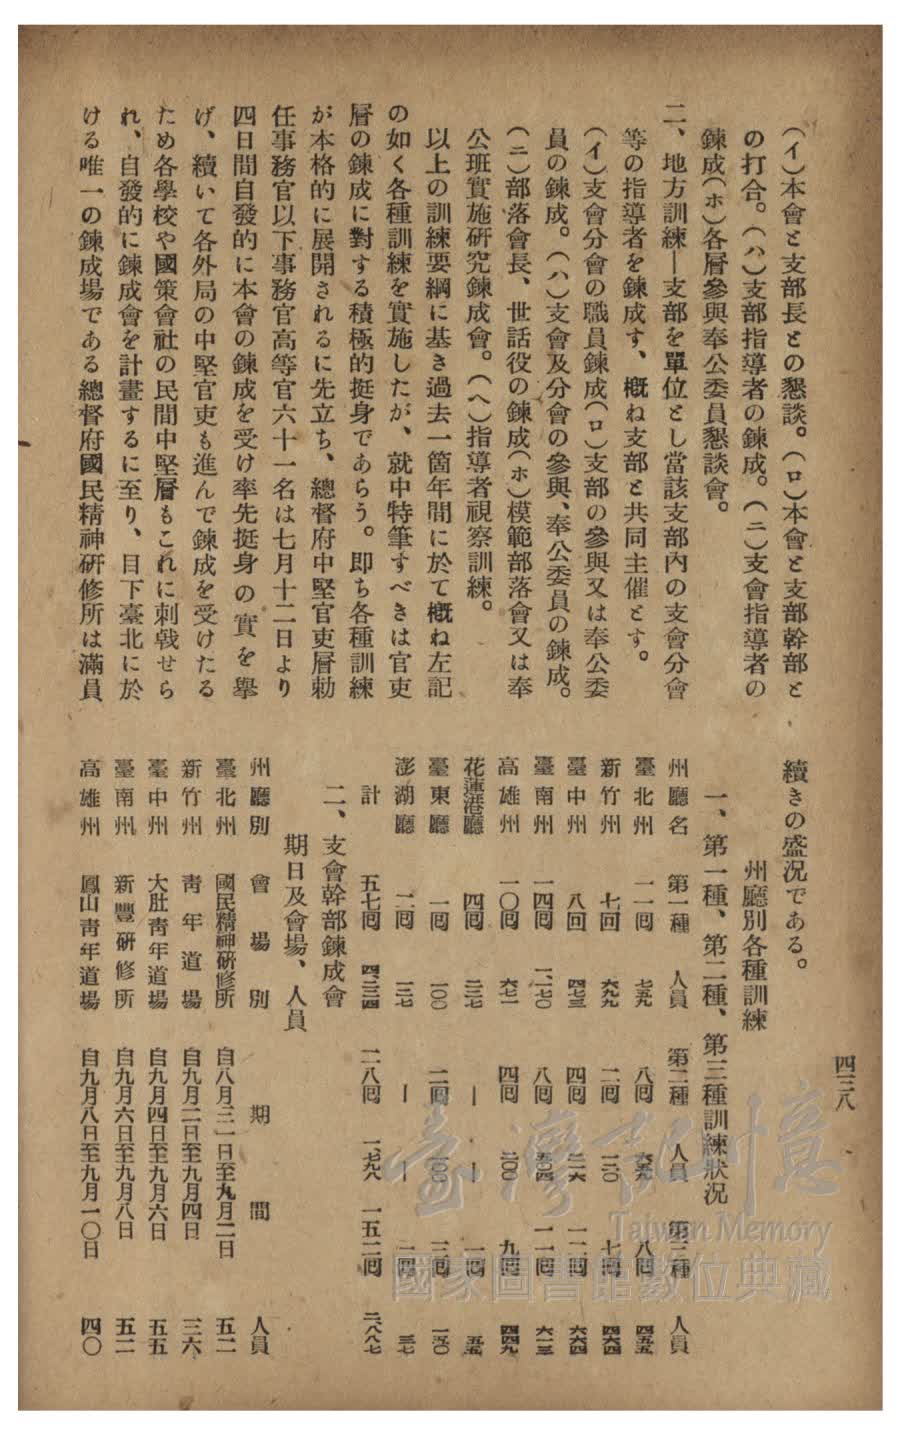 (イ)本會と支部長との懇談。(ロ)本會と支部幹部と
の打合。(ハ)支部指導者の鍊成。(ニ)支會指導者の
鍊成(ホ)各層參與奉公委員懇談會。
二、地方訓練―支部を單位とし當該支部內の支會分會
等の指導者を鍊成す、槪ね支部と共同主催とす。
(イ)支會分會の職員鍊成(ロ)支部の參與又は奉公委
員の鍊成。(ハ)支會及分會の參與、奉公委員の鍊成。
(ニ)部落會長、世話役の鍊成(ホ)模範部落會又は奉
公班實施硏究鍊成會。(ヘ)指導者視察訓練。
以上の訓練要綱に基き過去一箇年間に於て槪ね左記
の如く各種訓練を實施したが、就中特筆すべきは官吏
層の鍊成に對する積極的挺身であらう。卽ち各種訓練
が本格的に展開されるに先立ち、總督府中堅官吏層勅
任事務官以下事務官高等官六十一名は七月十二日より
四日間自發的に本會の鍊成を受け率先挺身の實を擧
げ、續いて各外局の中堅官吏も進んで鍊成を受けたる
ため各學校や國策會社の民間中堅層もこれに刺戟せら
れ、自發的に鍊成會を計畫するに至り、目下臺北に於
ける唯一の鍊成場である總督府國民精神硏修所は滿員
續きの盛況である。
州廳別各種訓練
一、第一種、第二種、第三種訓練狀況
州廳名 第一種 人員 第二種 人員 第三種 人員
臺北州 一一囘 七五九 八囘 六五九 八囘 四五五
新竹州 七囘 六九九 二囘 一二〇 七囘 四六四
臺中州 八囘 四七三 四囘 二一六 一二囘 六六四
臺南州 一四囘 一、一七〇 八囘 五〇四 一一囘 六一三
高雄州 一〇囘 六七一 四囘 二〇〇 九囘 四四九
花蓮港廳 四囘 二三七 ― ― 一囘 五五
臺東廳 一囘 一〇〇 二囘 一〇〇 三囘 一五〇
澎湖廳 二囘 一二七 ― ― 一囘 三七
計 五七囘 四、二三四 二八囘 一、七九八 一五二囘 二、八八七
二、支會幹部鍊成會
期日及會場、人員
州廳別 會場別 期間 人員
臺北州 國民精神硏修所 自八月三一日至九月二日 五二
新竹州 靑年道場 自九月二日至九月四日 三六
臺中州 大肚靑年道場 自九月四日至九月六日 五五
臺南州 新豐硏修所 自九月六日至九月八日 五二
高雄州 鳳山靑年道場 自九月八日至九月一〇日 四〇
四三八
臺灣記憶
Taiwan Memory
國家圖書館數位典藏